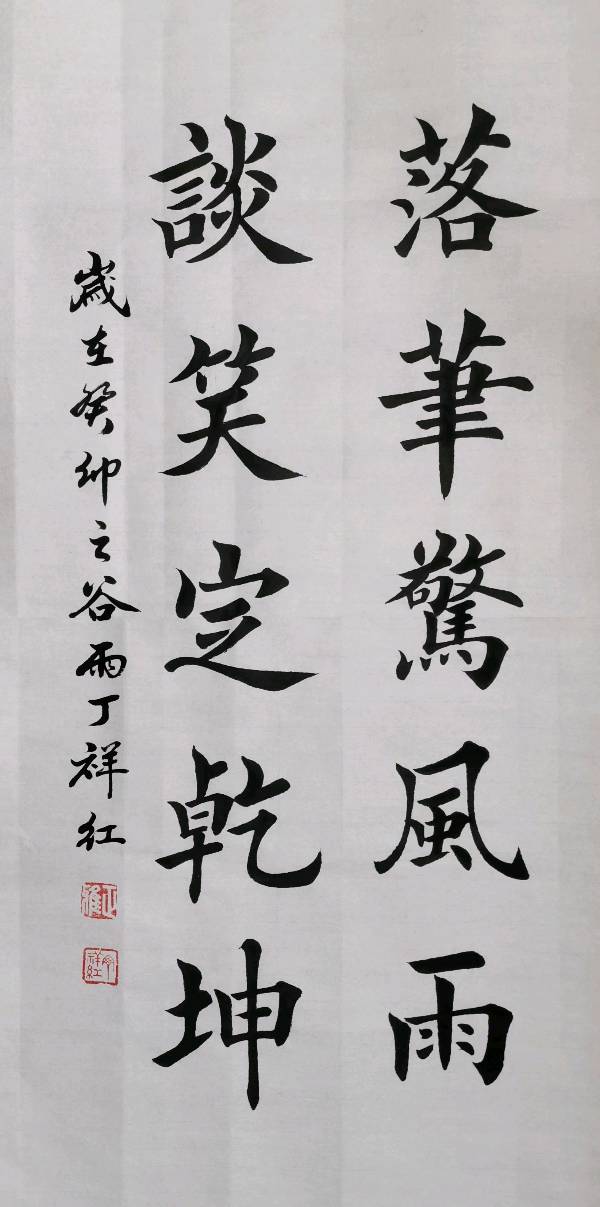 落筆驚風雨
談笑定乾坤
歲在癸卯之谷雨丁祥红